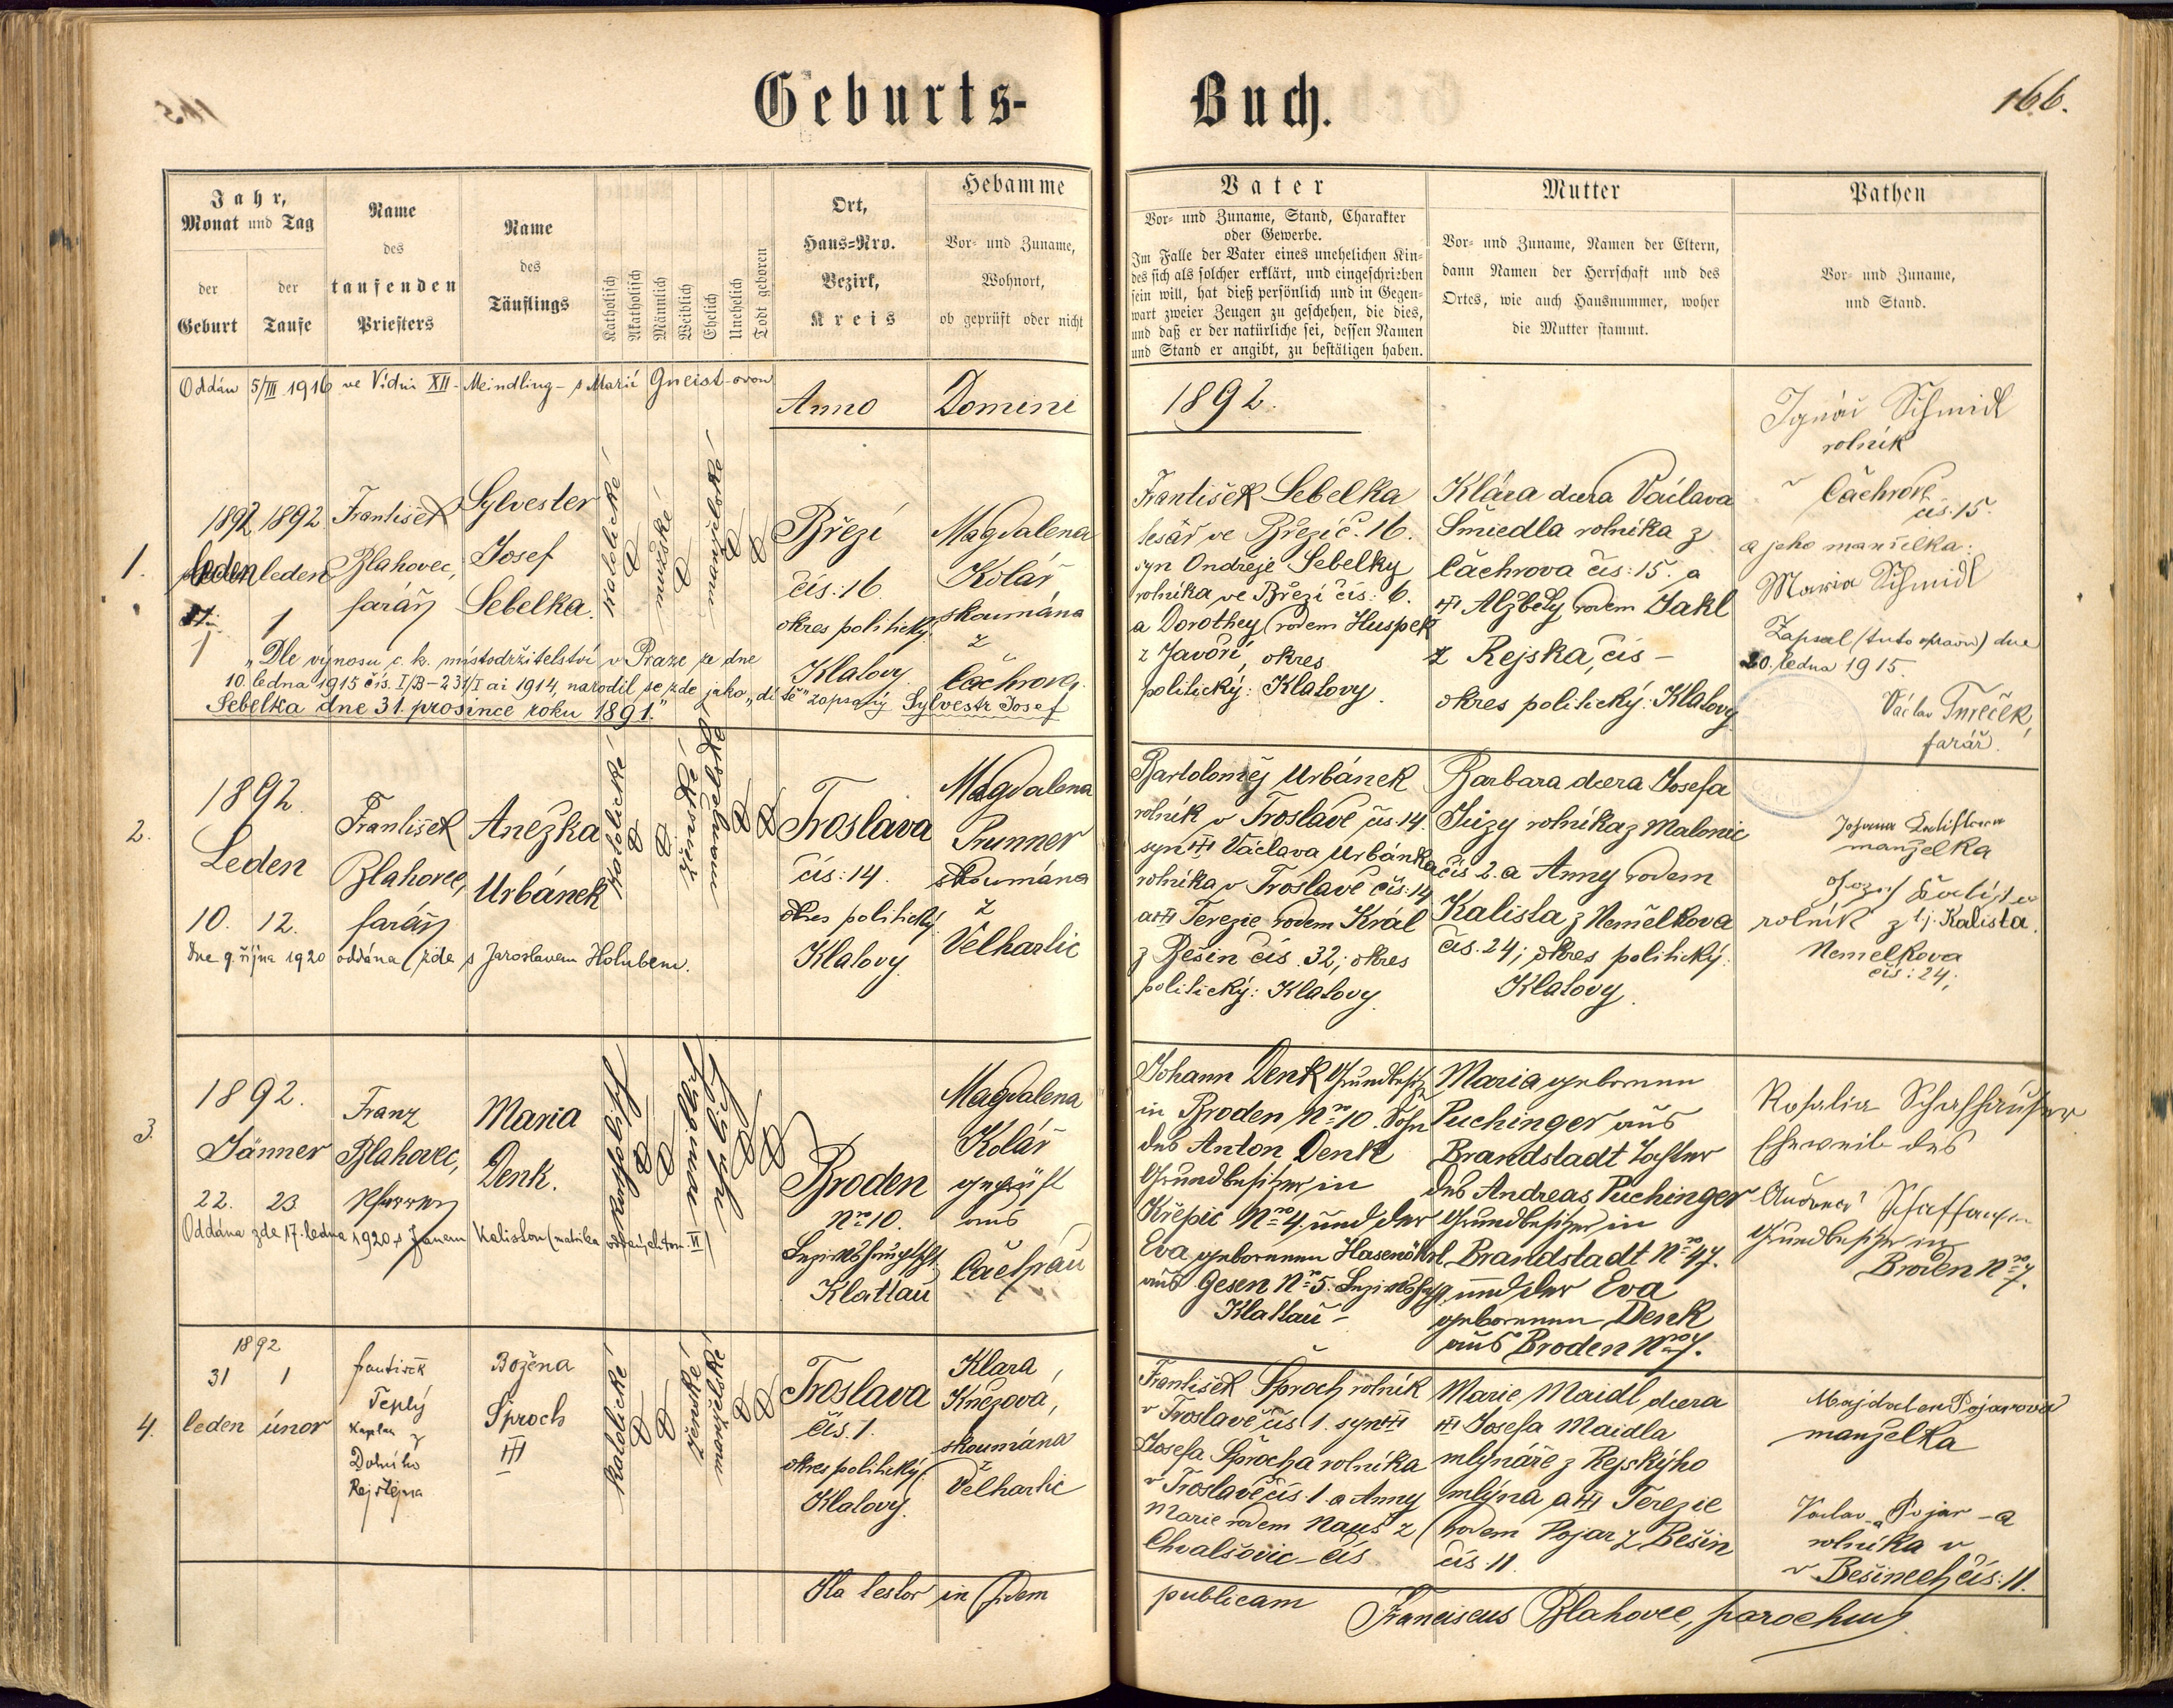 Geburts-
Buch.
166.
Jahr,
Monat und Tag
der
Geburt
der
Taufe
Name
des
taufenden
Priesters
Name
des
Täuflings
Katholisch
Akatholisch
Männlich
Weiblich
Ehelich
Unehelich
Todt geboren
Ort,
Haus-Nro.
Bezirk,
Kreis
Hebamme
Vor- und Zuname,
Wohnort,
ob geprüft oder nicht
Vater
Vor- und Zuname, Stand, Charakter
oder Gewerbe.
Im Falle der Vater eines unehelichen Kin-
des sich als solcher erklärt, und eingeschrieben
sein will, hat dieß persönlich und in Gegen-
wart zweier Zeugen zu geschehen, die dies,
und daß er der natürliche sei, dessen Namen
und Stand er angibt, zu bestätigen haben.
Mutter
Vor- und Zuname, Namen der Eltern,
dann Namen der Herrschaft und des
Ortes, wie auch Hausnummer, woher
die Mutter stammt.
Pathen
Vor- und Zuname,
und Stand.
Oddán 5/III 1916 ve Vídni XII - Meindling - s Marií Gneist-ovou
Anno Domini 1892.
1.
1892 1892
leden leden
1
1
František
Blahovec,
farář
Sylvester
Josef
Sebelka.
katolické
mužské
manželské
Březí
čís: 16
okres politický:
Klatovy
Magdalena
Kolář
skoumána
z
Čachrova.
František Sebelka
tesař ve Březí č. 16.
syn Ondřeje Sebelky
rolníka ve Březí čís: 6.
a Dorothey rodem Huspek
z Javoří, okres
politický: Klatovy.
Klára dcera Václava
Šmiedla rolníka z
Čachrova čís: 15. a
Alžběty rodem Jakl
z Rejska, čís –
okres politický: Klatovy
Ignác Schmidl
rolník
v Čachrově
čís: 15.
a jeho manželka:
Maria Schmidl
Zapsal (tuto opravu) dne
20. ledna 1915.
Václav
farář.
„Dle výnosu c. k. místodržitelství v Praze ze dne
10. ledna 1915 čís. I/B – 231/I ai 1914, narodil se zde jako „dítě" zapsaný Sylvestr Josef
Sebelka dne 31. prosince roku 1891."
2.
1892.
Leden
10. 12.
František
Blahovec,
farář
Anežka
Urbánek
katolické
ženské
manželské
Troslava
čís: 14.
okres politický
Klatovy.
Magdalena
Prunner
skoumána
z
Velhartic
Bartoloměj Urbánek
rolník v Troslavě čís. 14.
syn Václava Urbánka
rolníka v Troslavě čís: 14
a Terezie rodem Král
z Bešin čís. 32; okres
politický: Klatovy.
Barbara dcera Josefa
rolníka z Malonic
čís 2. a Anny rodem
Kalista z Nemělkova
čís. 24; okres politický:
Klatovy.
manželka
rolník z t.j. Kalista.
Nemelkova
čís: 24;
Dne 9. října 1920 oddána zde s Jaroslavem Holubem.
3.
1892.
Jänner
22. 23.
Franz
Blahovec,
Pfarrer
Maria
Denk.
katholisch
weiblich
ehelich
Broden
Nro 10.
Bezirkshauptscht
Klattau
Magdalena
Kolář
geprüft
aus
Čachrau
Johann Denk Grundbesitz.
in Broden Nro 10. Sohn
des Anton Denk
Grundbesitzer in
Křepic Nro 4 und der
Eva geborenen Hasenöhrl
aus Gesen Nro 5. Bezirkshptg
Klattau –
Maria geborenen
Puchinger aus
Brandstadt Tochter
des Andreas Puchinger
Grundbesitzer in
Brandstadt Nro 47.
und der Eva
geborenen Denk
aus Broden Nro 7.
Rosalia Schaffhauser
Eheweib des
Andreas Schaffhauser
Grundbesitzer in
Broden Nro 7.
Oddána zde 17. ledna 1920 s Janem Kalistou (matrika oddaných tom. VI)
4.
1892
31 1
leden únor
František
Teplý
Kaplan z
Dolního
Rejštejna
Božena
Sproch
katolické
ženské
manželské
Troslava
čís. 1.
okres politický:
Klatovy.
Klara
Knězová,
skoumána
z
Velhartic
František Sproch rolník
v Troslavě čís 1. syn
Josefa Sprocha rolníka
v Troslavě čís. 1. a Anny
Marie rodem Nauš z
Chvalšovic – čís
Marie Maidl dcera
Josefa Maidla
mlynáře z Rejskýho
mlýna, a Terezie
rodem Pojar z Bešin
čís. 11.
Majdalen Pojarova
manželka
Vaclav Pojar – a
rolníka v
v Bešinech čís: 11.
Ita testor in fidem publicam Franciscus Blahovec, parochus